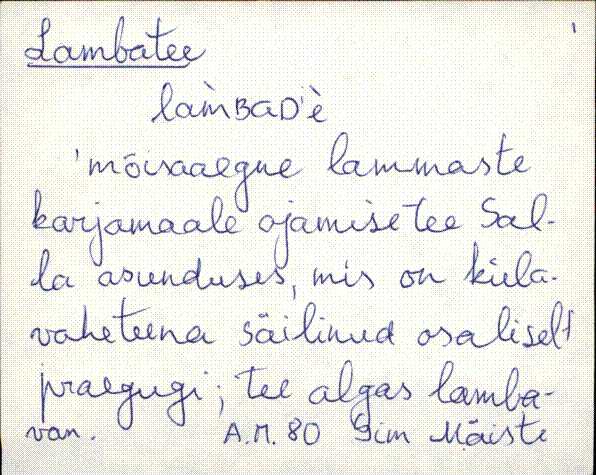 Lambatee
lam̀BAD'è
'mõisaaegne lammaste
karjamaale ajamise tee Sal-
la asunduses, mis on küla-
vaheteena säilinud osaliselt
praegugi; tee algas lamba-
van. A.M. 80 Sim Mäiste